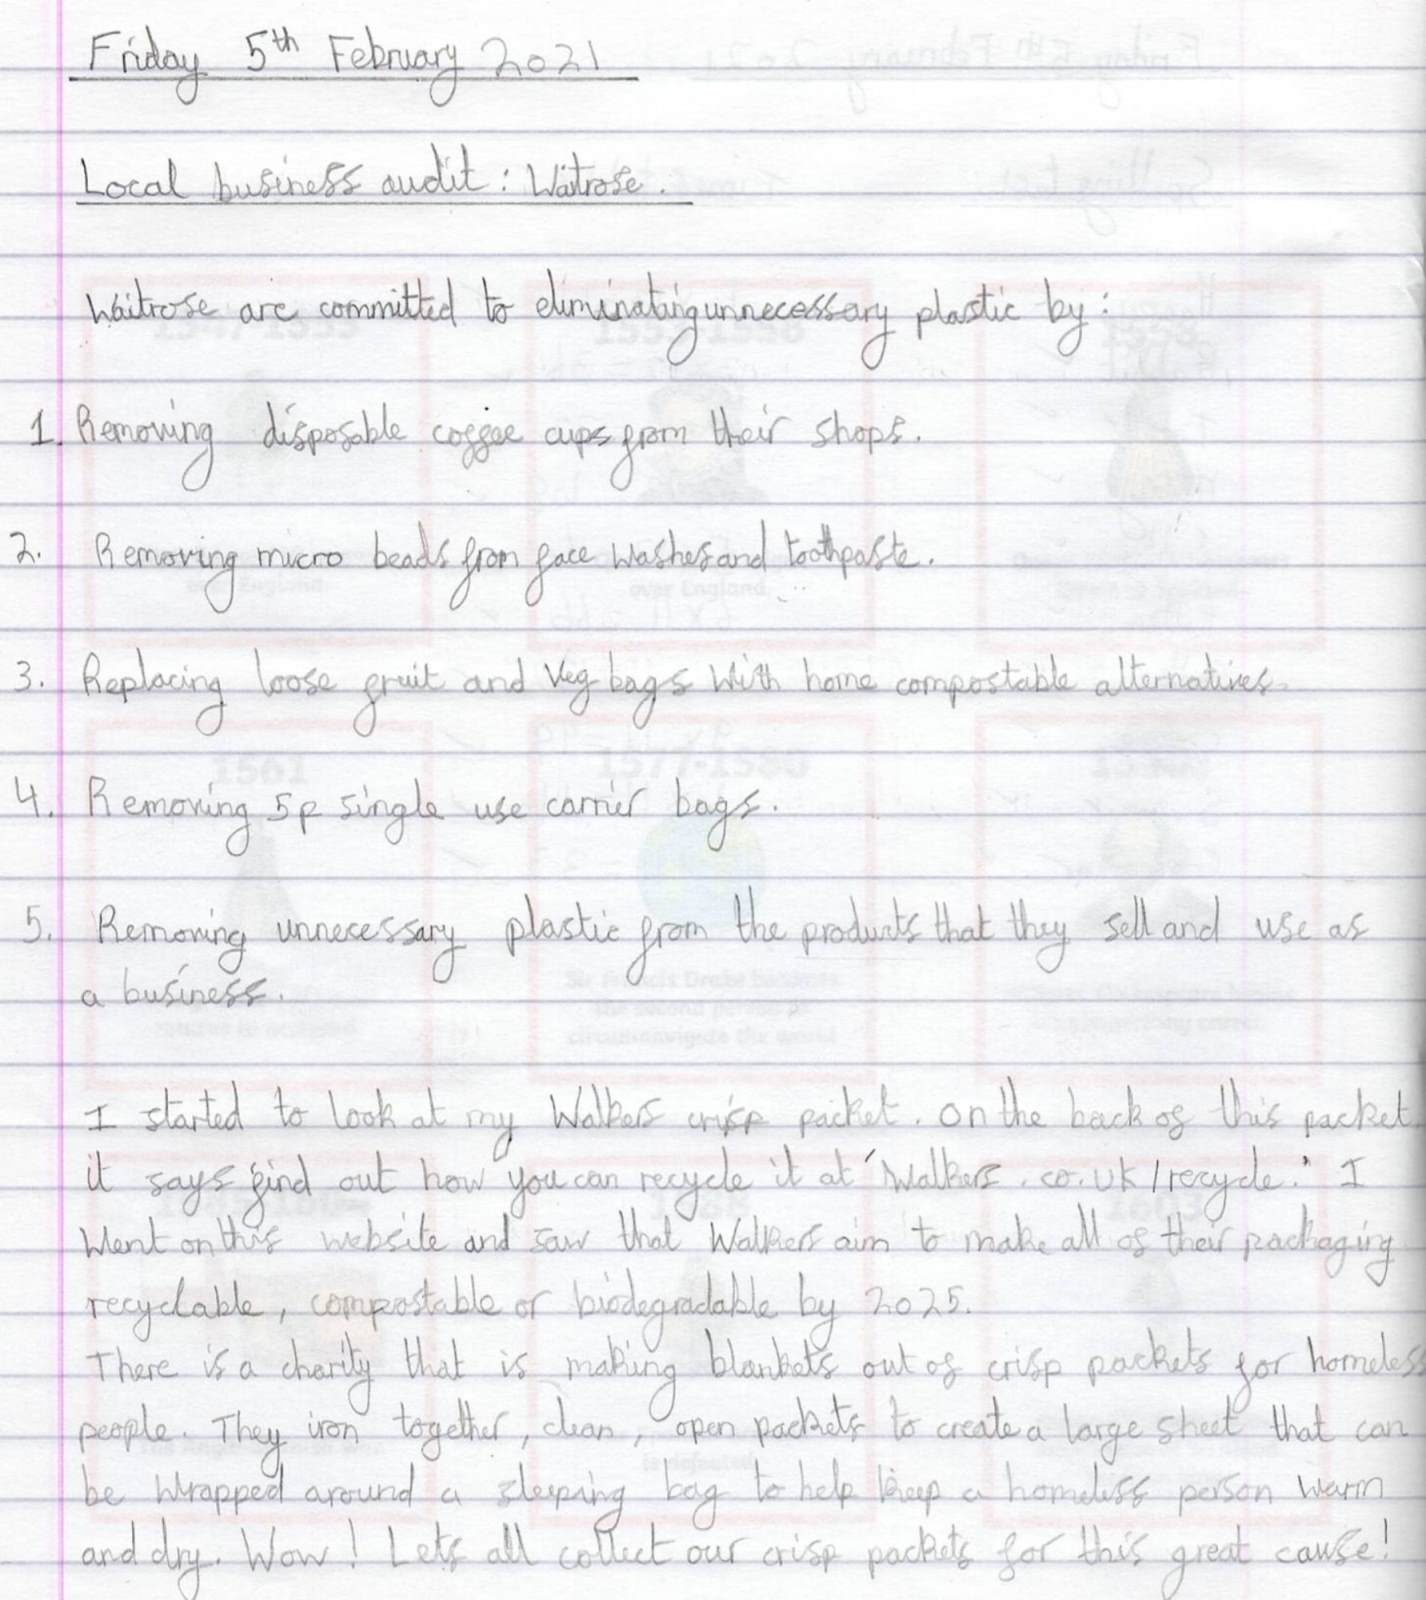 Friday 5th February 2021
Local business audit: Waitrose.
Waitrose are committed to eliminating unnecessary plastic by:
1. Removing disposable coffee cups from their shops.
2. Removing micro beads from face washes and toothpaste.
3. Replacing loose fruit and veg bags with home compostable alternatives.
4. Removing 5p single use carrier bags.
5. Removing unnecessary plastic from the products that they sell and use as
a business.
I started to look at my Walkers crisp packet. On the back of this packet
it says find out how you can recycle it at 'Walkers.co.uk/recycle.' I
went on this website and saw that Walkers aim to make all of their packaging
recyclable, compostable or biodegradable by 2025.
There is a charity that is making blankets out of crisp packets for homeless
people. They iron together, clean, open packets to create a large sheet that can
be wrapped around a sleeping bag to help keep a homeless person warm
and dry. Wow! Lets all collect our crisp packets for this great cause!